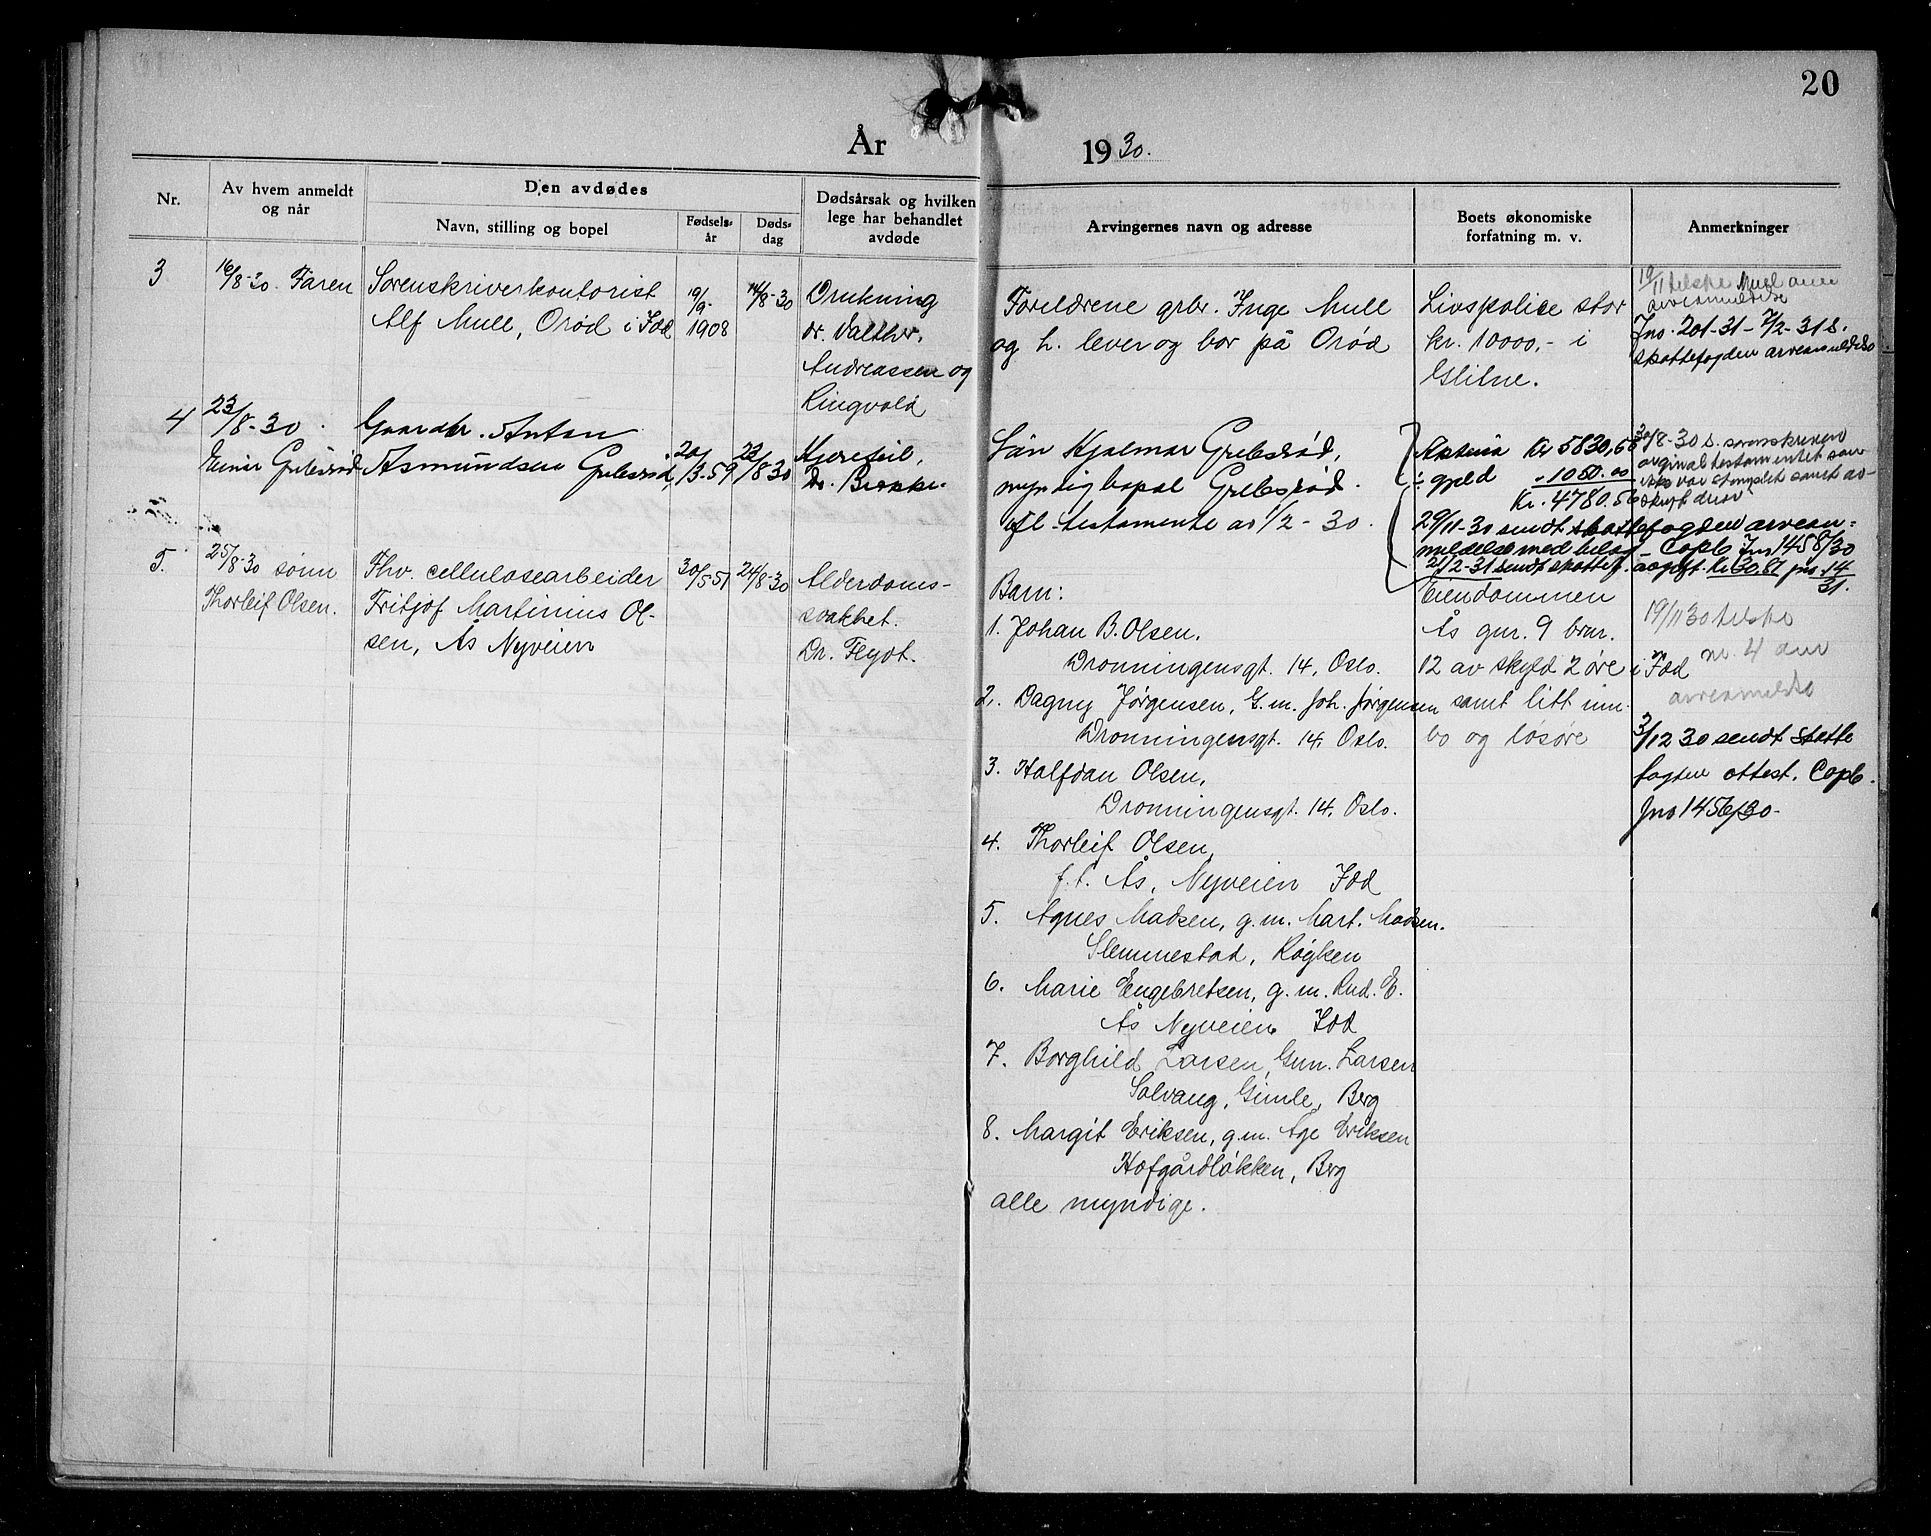 20
År 1930.
Nr.
Av hvem anmeldt
og når
Den avdødes
Navn, stilling og bopel
Fødsels-
år
Døds-
dag
Dødsårsak og hvilken
lege har behandlet
avdøde
Arvingernes navn og adresse
Boets økonomiske
forfatning m. v.
Anmerkninger
3
16/8-30. Faren
Sorenskriverkontorist
Alf Mull, Orød i Idd
19/9-
1908
14/8-30
Drukning
dr. Valther,
Andreassen og
Ringvold
Foreldrene grbr. Inge Mull
og h. lever og bor på Orød
Livspolice stor
kr. 10000,- i
Glitne.
Mull om
arveanmeldelse
Jno. 201-31 - 7/2-31 s.
skattefogden arveanmeldelse
4
23/8-30.
Einar Grebsrød
Gaardbr. Anton
Asmundsen Grebsrød,
20/3-59
23/8 30
Hjertefeil,
Dr. Brekke.
Sön Hjalmar Grebsrød,
myndig bopæl Grebsrød.
ifl. testamente av 1/2-30.
Aktiva Kr 5830,56
÷ gjeld " 1050.00
Kr. 4780.56
30/8-30 s. sorenskriveren
orginal testamentet som
ikke var stemplet samt av-
skrift derav
29/11-30 sendt skattefogden arvean-
meldelse med bilag - Copb Jno 1458/30
21/2-31 sendt skattef. avgift. kr 30.87 jno. 14/31.
5.
25/8-30 sönn
Thorleif Olsen.
Fhv. cellulosearbeider
Fritjof Martinius Ol-
sen, Ås Nyveien
30/5-51
24/8-30
Alderdoms-
svakhet.
Dr. Flydt.
Barn:
1. Johan B. Olsen,
Dronningensgt. 14, Oslo.
2. Dagny Jørgensen, G. m. Joh. Jørgensen
Dronningensgt. 14, Oslo.
3. Halfdan Olsen,
Dronningensgt. 14, Oslo.
4. Thorleif Olsen,
f.t. Ås, Nyveien Idd
5. Agnes Madsen, g.m. Mart. Madsen.
Slemmestad, Røyken
6. Marie Engebretsen, g.m. Rud. E.
Ås Nyveien Idd
7. Borghild Larsen, Gun. Larsen
Solvang, Gimle, Berg
8. Margit Eriksen, g.m. Åge Eriksen
Hofgårdløkken, Berg
alle myndige.
Eiendommen
Ås gnr. 9 bnr.
12 av skyld 2 øre i Idd
samt litt inn-
bo og løsøre
19/11 30 tilskr
nr. 4 om
arveanmeldelse
3/12 30 sendt skatte
fogden attest. Copb.
Jno 1456/30-